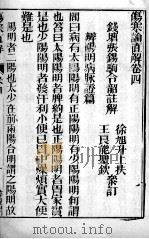 傷寒論直解卷四
錢塘張錫駒令韶註解
徐旭升上扶
王良能聖欽
參訂
辯陽明病脉證篇
問曰病有太陽陽明有正陽陽明有少陽陽明何謂
也答曰太陽陽明者脾約是也正陽陽明者胃家實
是也少陽陽明者發汗利小便已胃中燥煩實大便
難是也
陽明者二陽也太少在前兩陽合明謂之陽明故